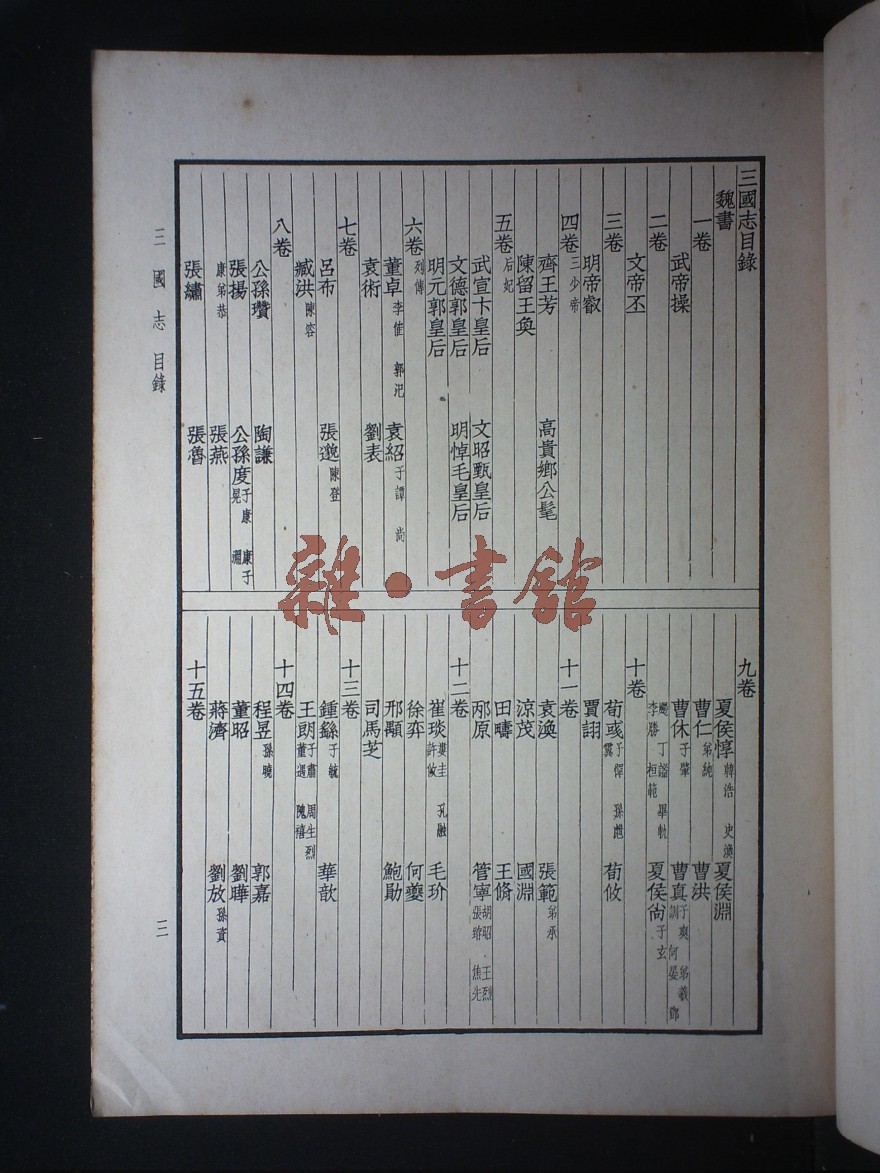 三國志目錄
魏書
一卷
武帝操
二卷
文帝丕
三卷
明帝叡
四卷 三少帝
齊王芳 高貴鄉公髦
陳留王奐
五卷 后妃
武宣卞皇后 文昭甄皇后
文德郭皇后 明悼毛皇后
明元郭皇后
六卷 列傳
董卓 李傕 郭汜 袁紹 子譚 尚
袁術 劉表
七卷
呂布 張邈 陳登
臧洪 陳容
八卷
公孫瓚 陶謙
張揚 公孫度 子康 康子 晃 淵
康弟恭 張燕
張繡 張魯
九卷
夏侯惇 韓浩 史渙 夏侯淵
曹仁 弟純 曹洪
曹休 子肇 曹真 子爽 弟羲 訓 何晏 鄧
颺 丁謐 畢軌 李勝 桓範 夏侯尚 子玄
十卷
荀彧 子惲 孫甝 霬 荀攸
賈詡
十一卷
袁渙 張範 弟承
涼茂 國淵
田疇 王脩
邴原 管寧 胡昭 王烈 張臶 焦先
十二卷
崔琰 婁圭 孔融 許攸 毛玠
徐弈 何夔
邢顒 鮑勛
司馬芝
十三卷
鍾繇 子毓 華歆
王朗 子肅 周生烈 董遇 隗禧
十四卷
程昱 孫曉 郭嘉
董昭 劉曄
蔣濟 劉放 孫資
十五卷
三國志 目錄
三
雜·書館